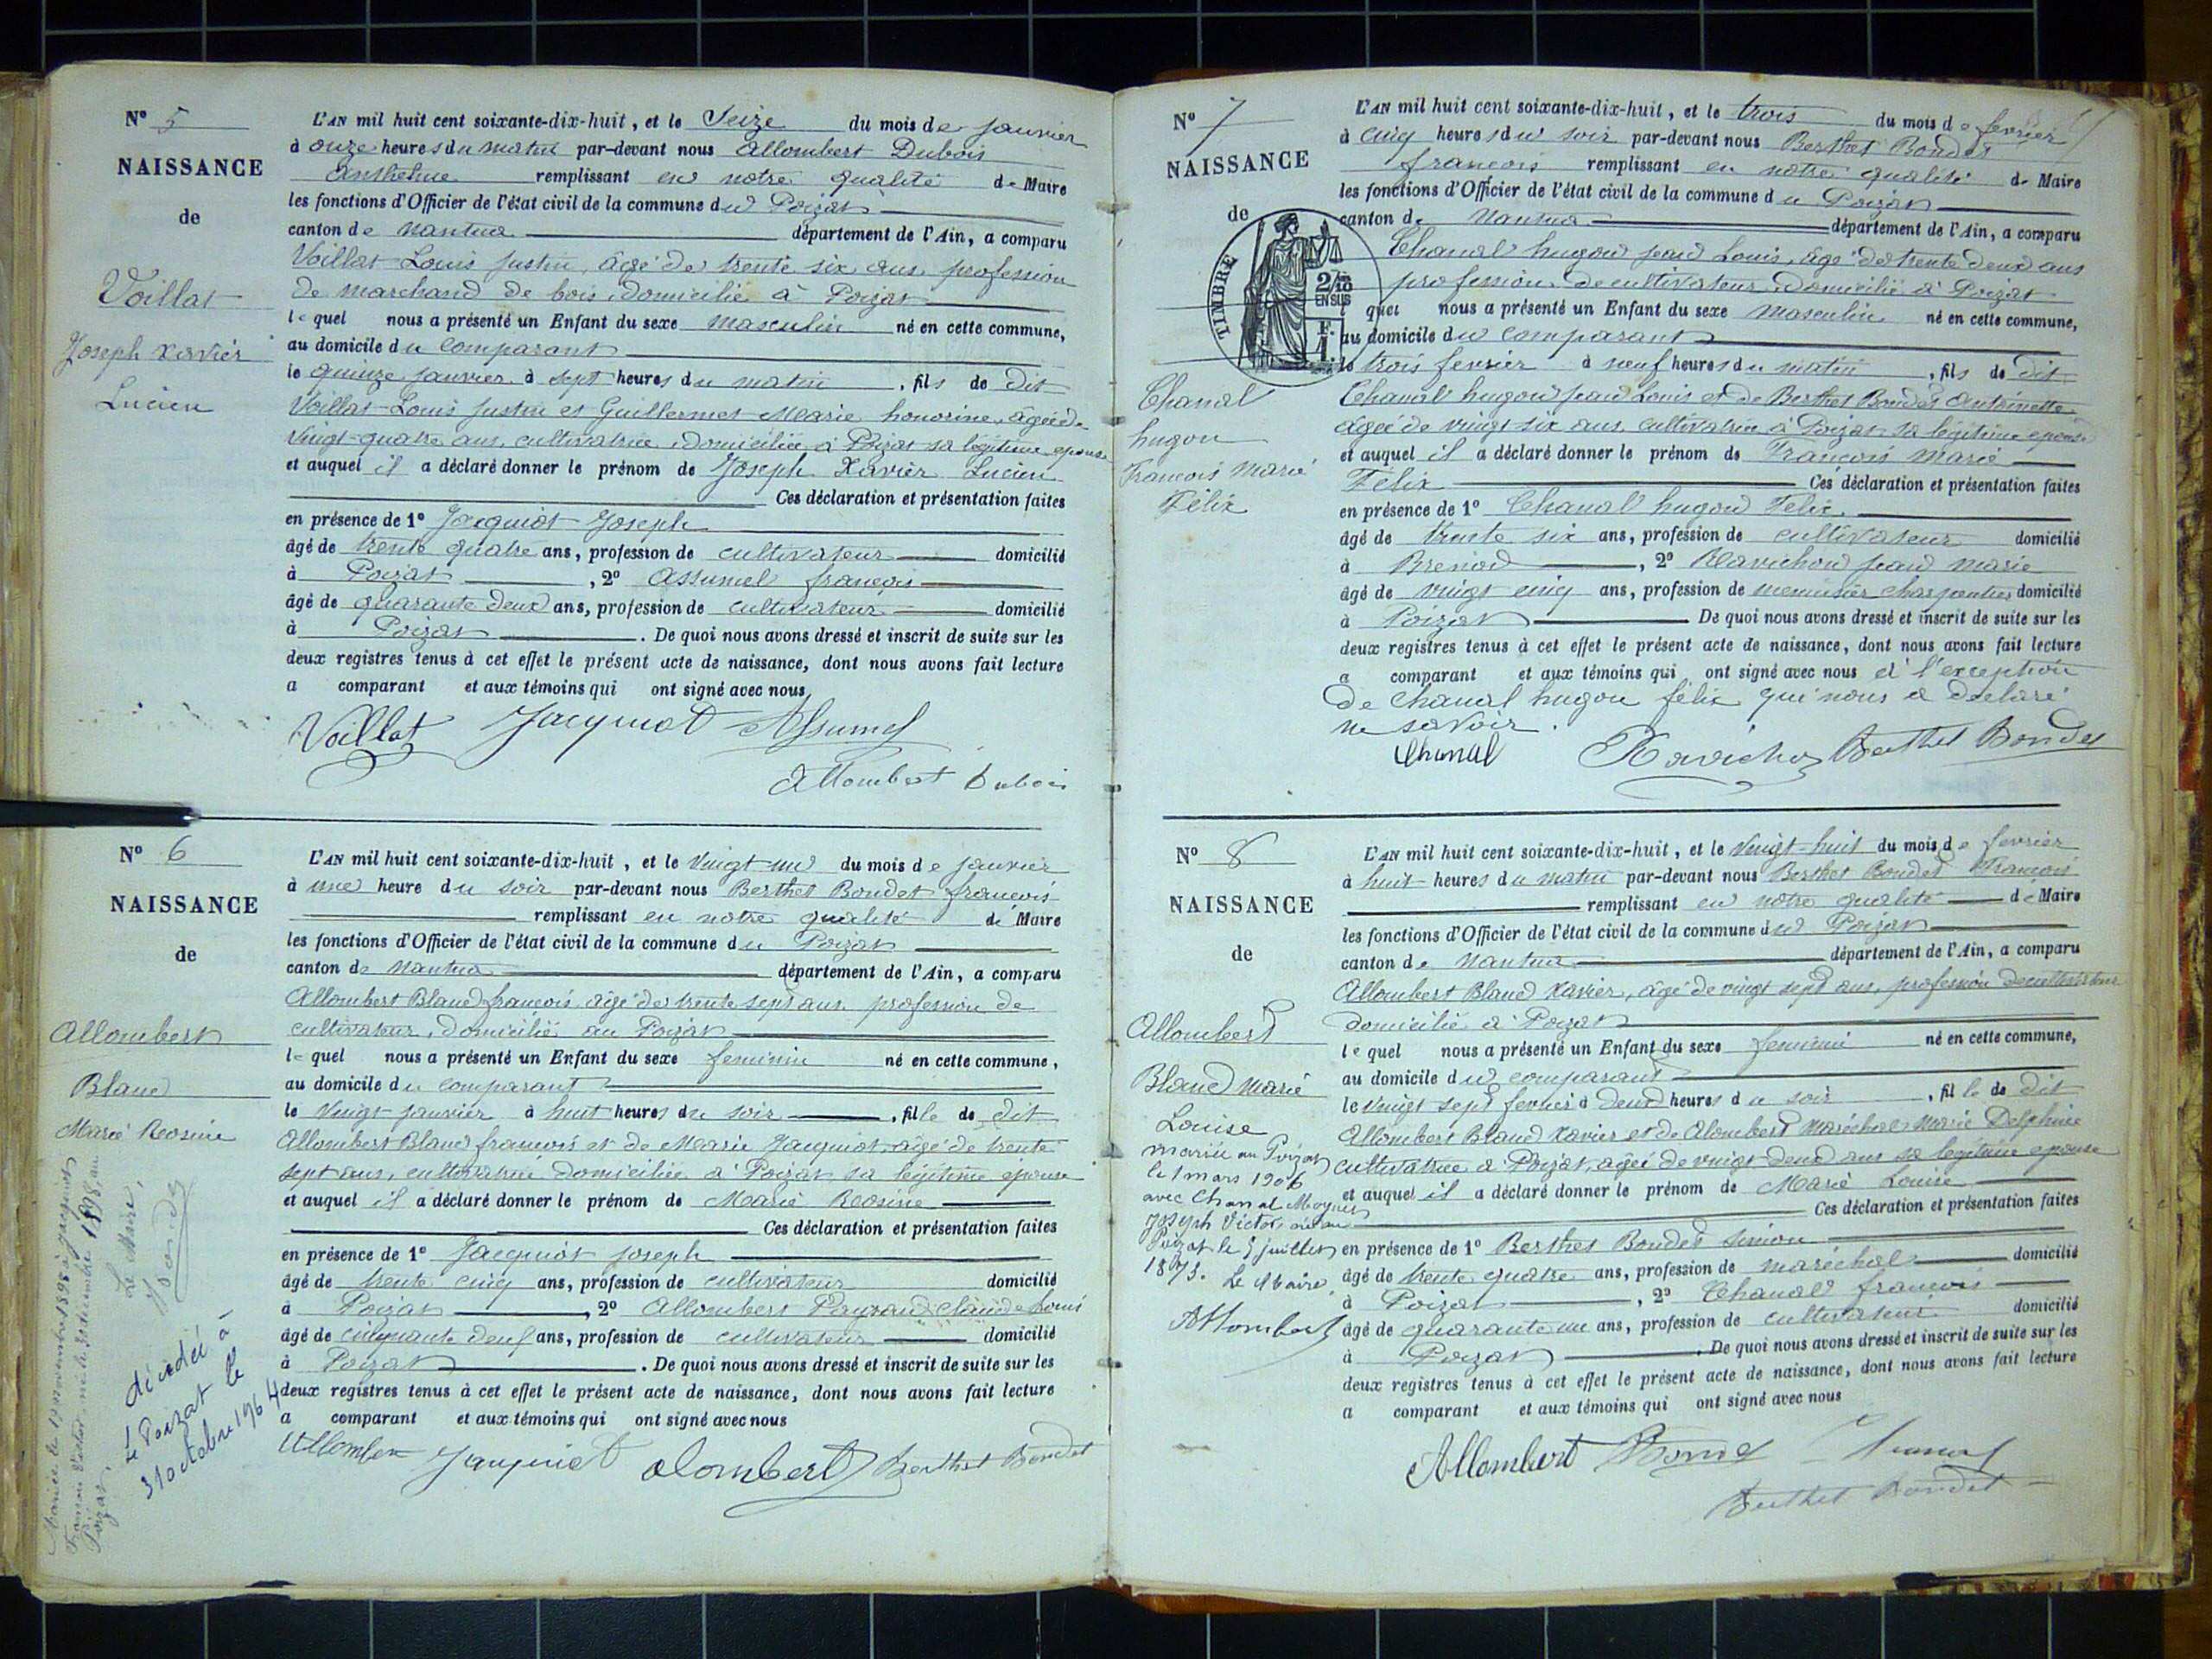 N° 5
NAISSANCE
de
Voillat
Joseph Xavier
Lucien
L'AN mil huit cent soixante-dix-huit, et le Seize du mois de janvier
à onze heures du matin par-devant nous Allombert Dubois
Anthelme remplissant en notre qualité de Maire
les fonctions d'Officier de l'état civil de la commune du Poizat
canton de Nantua département de l'Ain, a comparu
Voillat Louis Justin, âgé de trente six ans profession
de marchand de bois, domicilié à Poizat
lequel nous a présenté un Enfant du sexe masculin né en cette commune,
au domicile du comparant
le quinze janvier à sept heures du matin, fils de dit
Voillat Louis Justin et Guillermet Marie honorine, âgée de
vingt-quatre ans, cultivatrice, domiciliée à Poizat sa légitime epouse
et auquel il a déclaré donner le prénom de Joseph Xavier Lucien
Ces déclaration et présentation faites
en présence de 1° Jacquiot Joseph
âgé de trente quatre ans, profession de cultivateur domicilié
à Poizat, 2° Assumel françois
âgé de quarante deux ans, profession de cultivateur domicilié
à Poizat. De quoi nous avons dressé et inscrit de suite sur les
deux registres tenus à cet effet le présent acte de naissance, dont nous avons fait lecture
a comparant et aux témoins qui ont signé avec nous
Voillat Jacquiot Assumel
Allombert Dubois
N° 6
NAISSANCE
de
Allombert
Bland
Marie Rosine
Mariée le 19 novembre 1898 à
né le 30 décembre 1898, au
Poizat,
Le Maire,
décédée à
Le Poizat le
31 octobre 1964
L'AN mil huit cent soixante-dix-huit, et le Vingt un du mois de janvier
à une heure du soir par-devant nous Berthet Bondet françois
remplissant en notre qualité de Maire
les fonctions d'Officier de l'état civil de la commune du Poizat
canton de Nantua département de l'Ain, a comparu
Allombert Bland françois âgé de trente sept ans profession de
cultivateur, domicilié au Poizat
lequel nous a présenté un Enfant du sexe feminin né en cette commune,
au domicile du comparant
le Vingt janvier à huit heures du soir, fille de dit
Allombert Bland francois et de Marie Jacquiot, âgé de trente
sept ans, cultivatrice domiciliée à Poizat sa légitime epouse
et auquel il a déclaré donner le prénom de Marie Rosine
Ces déclaration et présentation faites
en présence de 1° Jacquiot joseph
âgé de trente cinq ans, profession de cultivateur domicilié
à Poizat, 2° Allombert Claude Louis
âgé de cinquante neuf ans, profession de cultivateur domicilié
à Poizat. De quoi nous avons dressé et inscrit de suite sur les
deux registres tenus à cet effet le présent acte de naissance, dont nous avons fait lecture
a comparant et aux témoins qui ont signé avec nous
Allomber Jacquiot alombert Berthet Bondet
N° 7
NAISSANCE
de
TIMBRE
2/10
EN SUS
F.
1.
Chanal
hugon
François Marie
Félix
L'AN mil huit cent soixante-dix-huit, et le trois du mois de fevrier
à cinq heures du soir par-devant nous Berthet Bondet
francois remplissant en notre qualité de Maire
les fonctions d'Officier de l'état civil de la commune du Poizat
canton de Nantua département de l'Ain, a comparu
Chanal hugon jean Louis, âgé de trente deux ans
profession de cultivateur, domicilié à Poizat
quel nous a présenté un Enfant du sexe masculin né en cette commune,
au domicile du comparant
le trois fevrier à neuf heures du matin, fils de dit
Chanal hugon jean Louis et de Berthet Bondet Antoinette
âgée de vingt six ans, cultivatrice à Poizat sa légitime epouse
et auquel il a déclaré donner le prénom de François Marie
Félix Ces déclaration et présentation faites
en présence de 1° Chanal hugon Felix
âgé de trente six ans, profession de cultivateur domicilié
à Brenod, 2° Ravichon jean marie
âgé de vingt cinq ans, profession de menuisier charpentier domicilié
à Poizat De quoi nous avons dressé et inscrit de suite sur les
deux registres tenus à cet effet le présent acte de naissance, dont nous avons fait lecture
a comparant et aux témoins qui ont signé avec nous à l'exception
de Chanal hugon félix qui nous a declaré
ne savoir.
Chanal Ravichon Berthet Bondet
N° 8
NAISSANCE
de
Allombert
Bland Marie
Louise
mariée au Poizat
le 1 mars 1906
avec Chanal Moyner
joseph Victor, né au
Poizat le 5 juillet
1873. Le Maire,
Allombert
L'AN mil huit cent soixante-dix-huit, et le Vingt-huit du mois de fevrier
à huit heures du matin par-devant nous Berthet Bondet François
remplissant en notre qualité de Maire
les fonctions d'Officier de l'état civil de la commune du Poizat
canton de Nantua département de l'Ain, a comparu
Allombert Bland Xavier, âgé de vingt sept ans, profession de cultivateur
domicilié à Poizat
lequel nous a présenté un Enfant du sexe feminin né en cette commune,
au domicile du comparant
le vingt sept fevrier à deux heures du soir, fille de dit
Allombert Bland Xavier et de Alombert Maréchal Marie Delphine
cultivatrice à Poizat, agée de vingt-deux ans sa legitime epouse
et auquel il a déclaré donner le prénom de Marie Louise
Ces déclaration et présentation faites
en présence de 1° Berthet Bondet Simon
âgé de trente quatre ans, profession de maréchal domicilié
à Poizat, 2° Chanal francois
âgé de quarante un ans, profession de cultivateur domicilié
à Poizat. De quoi nous avons dressé et inscrit de suite sur les
deux registres tenus à cet effet le présent acte de naissance, dont nous avons fait lecture
a comparant et aux témoins qui ont signé avec nous
Allombert
Berthet Bondet